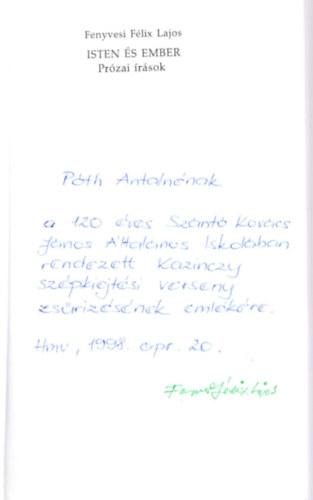 Fenyvesi Félix Lajos
ISTEN ÉS EMBER
Prózai írások
Póth Antalnénak
a 120 éves Szántó Kovács
János Általános Iskolában
rendezett Kazinczy
szépkiejtési verseny
zsűrizésének emlékére.
Hmv, 1998. apr. 20.
Fenyvesi Félix Lajos